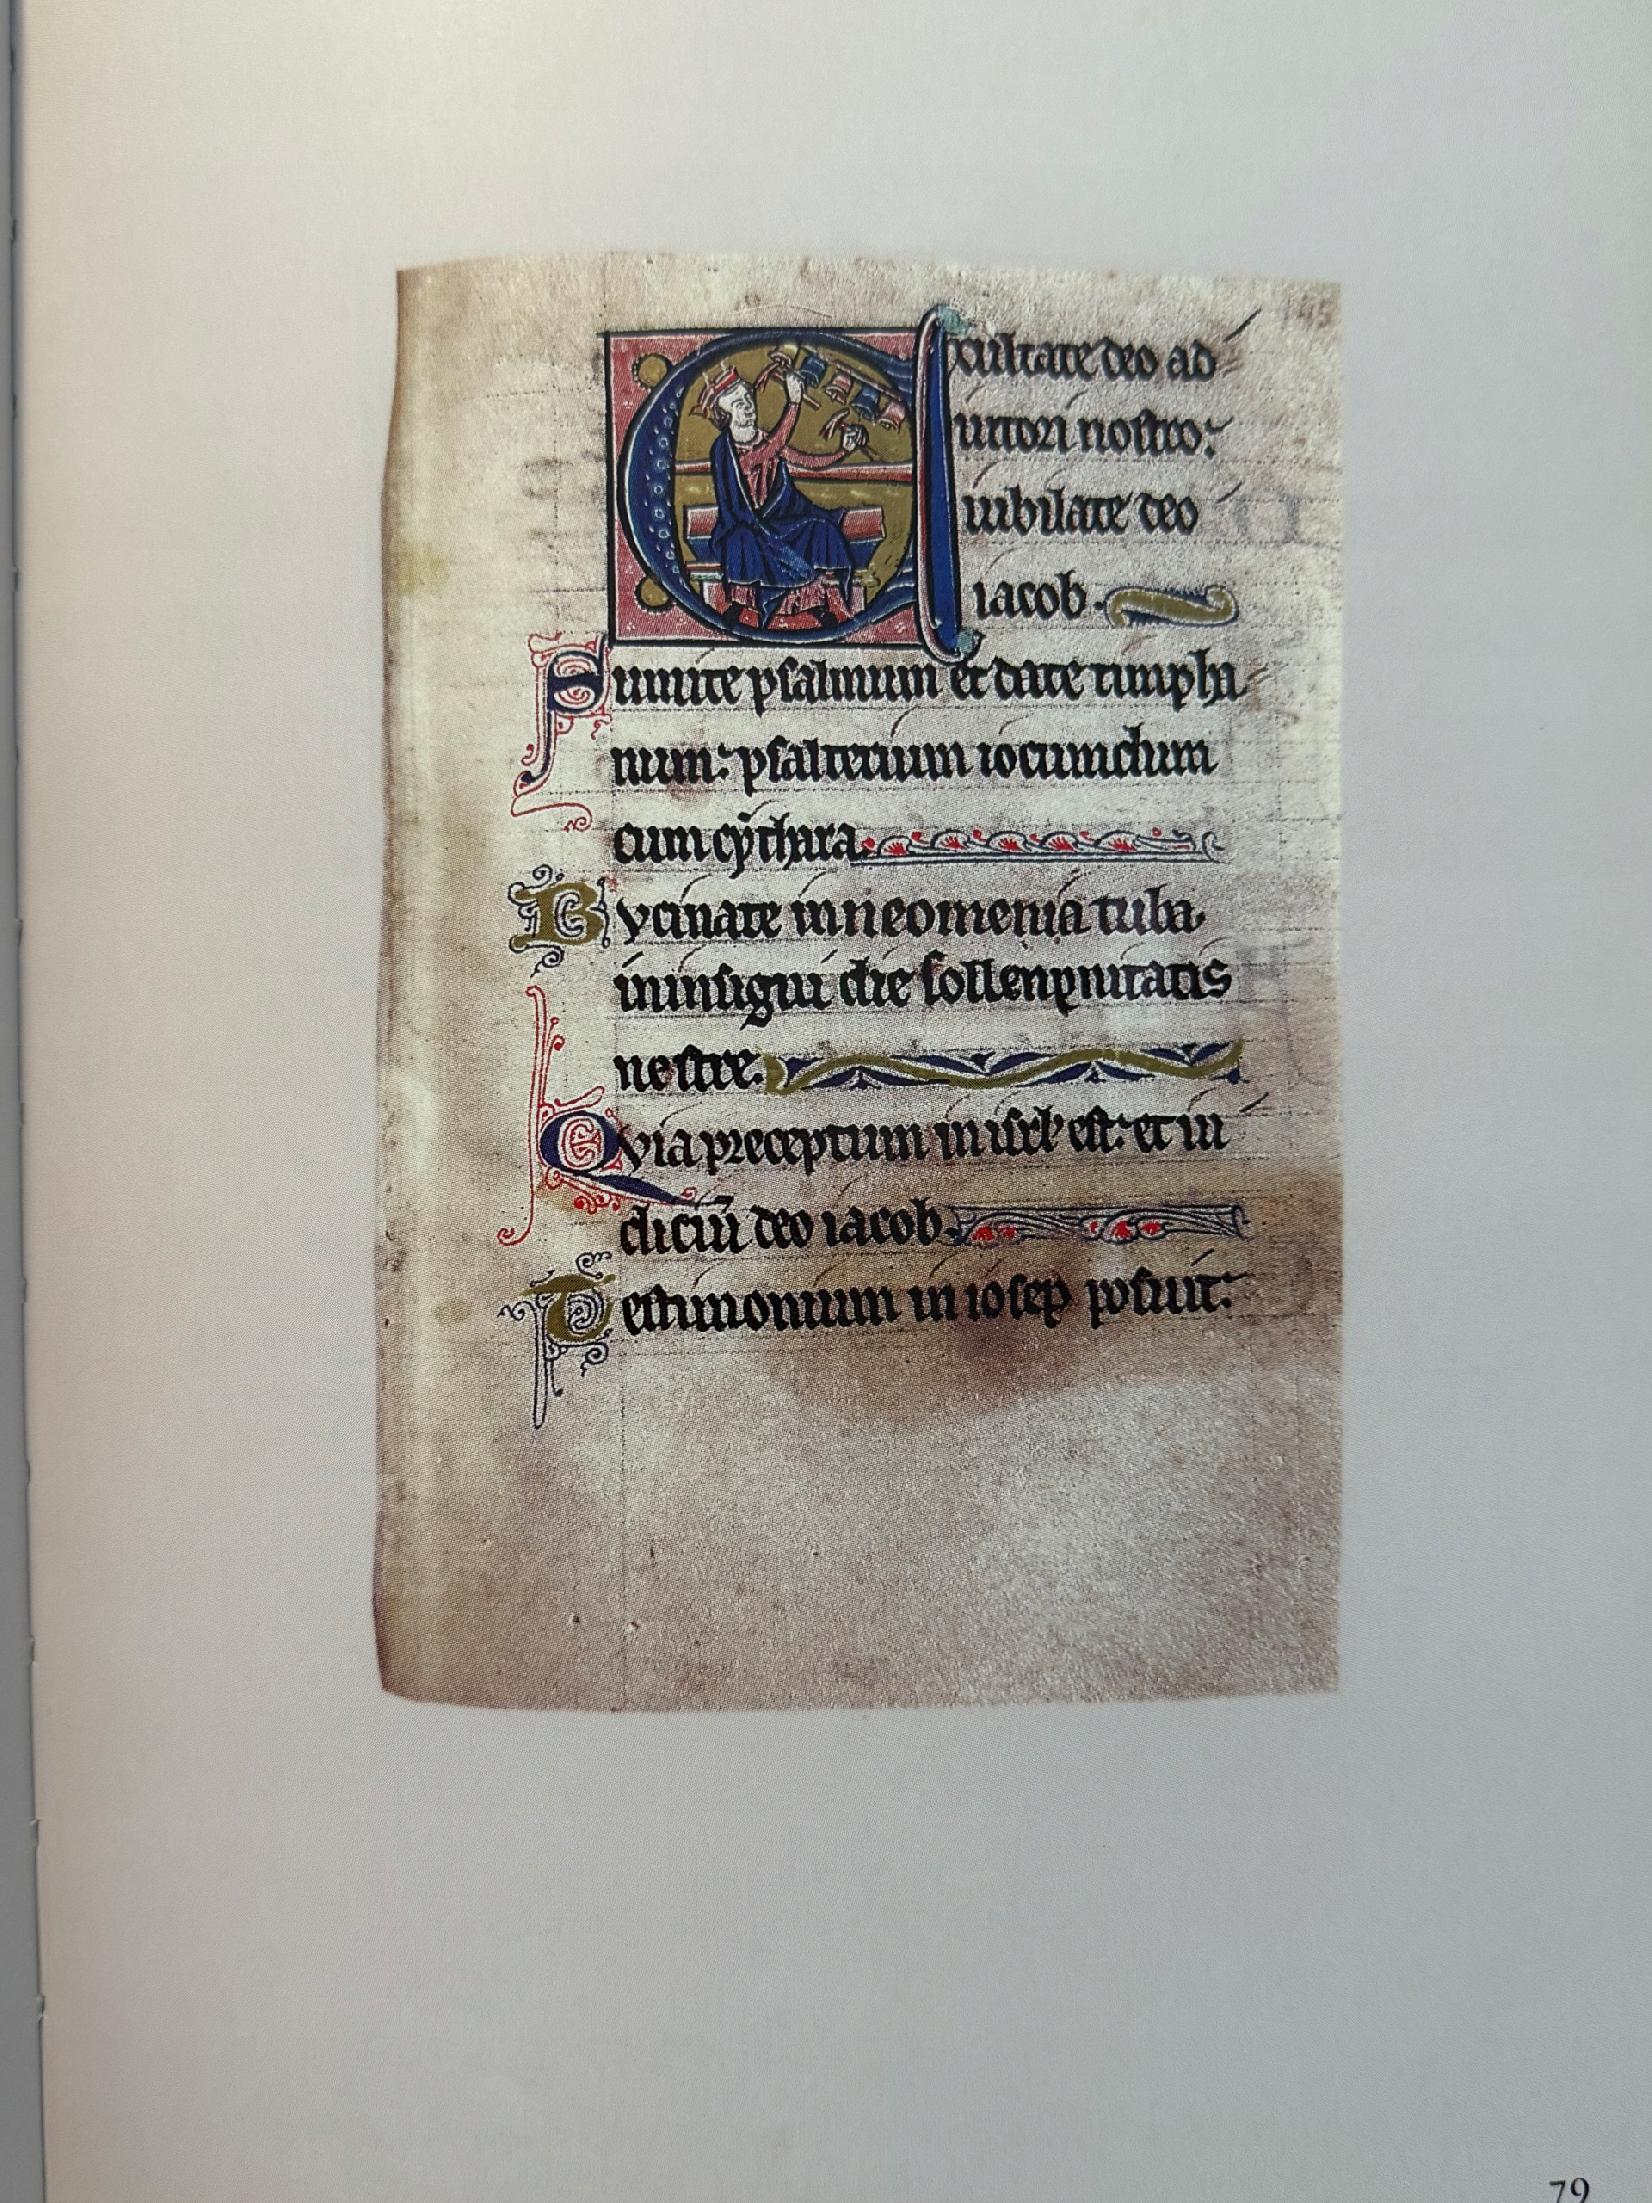 Exultate deo ad
iutori nostro:
iubilate deo
iacob.
Sumite psalmum et date timpha
num: psalterium iocumdum
cum cythara.
Bvcinate in neomenia tuba
in insigni die sollenpnitatis
nostre.
Qvia preceptum in isrl' est: et iu
diciū deo iacob.
Testimonium in iosep posuit:
79